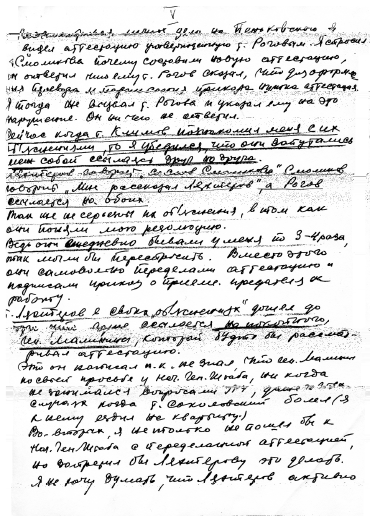 V
личное дело на Пеньковского я
видел аттестацию утвержденную г. Роговым. Я спросил
Смоликова почему составили новую аттестацию,
он ответил что ему г. Рогов сказал, что для оформле
ния приказа нужна аттестация
Я тогда же вызвал г. Рогова и указал ему на это
нарушение. Он ничего не ответил.
Сейчас когда г. Климов познакомил меня с их
объяснениями, то я убедился, что они запутались
меж собой ссылаются друг на друга.
говорит, со слов Смоликова Смоликов
говорит „Мне рассказал Ляхтеров", а Рогов
ссылается на обоих.
Так же не серьезны их объяснения, в том как
они поняли мою резолюцию.
Ведь они ежедневно бывали у меня по 3-4 раза,
так могли бы переспросить. Вместо этого
они самовольно переделали аттестацию и
подписали приказ о приеме предателя на
работу.
Ляхтеров в своих „объяснениях" дошел до
что даже ссылается на покойного,
ген. Маландина, который будто бы рассмат-
ривал аттестацию.
Это он написал п.к. не зная, что ген. Маланин
по своей просьбе у Нач. Ген. Штаба, ни когда
не занимался вопросами ГРУ, даже в тех
случаях когда г. Соколовский болел (я
к нему ездил на квартиру.)
Во-вторых, я не только не пошел бы к
Нач. Ген. Штаба с переделанной аттестацией,
но запретил бы Ляхтерову это делать.
Я не хочу думать, что Ляхтеров активно